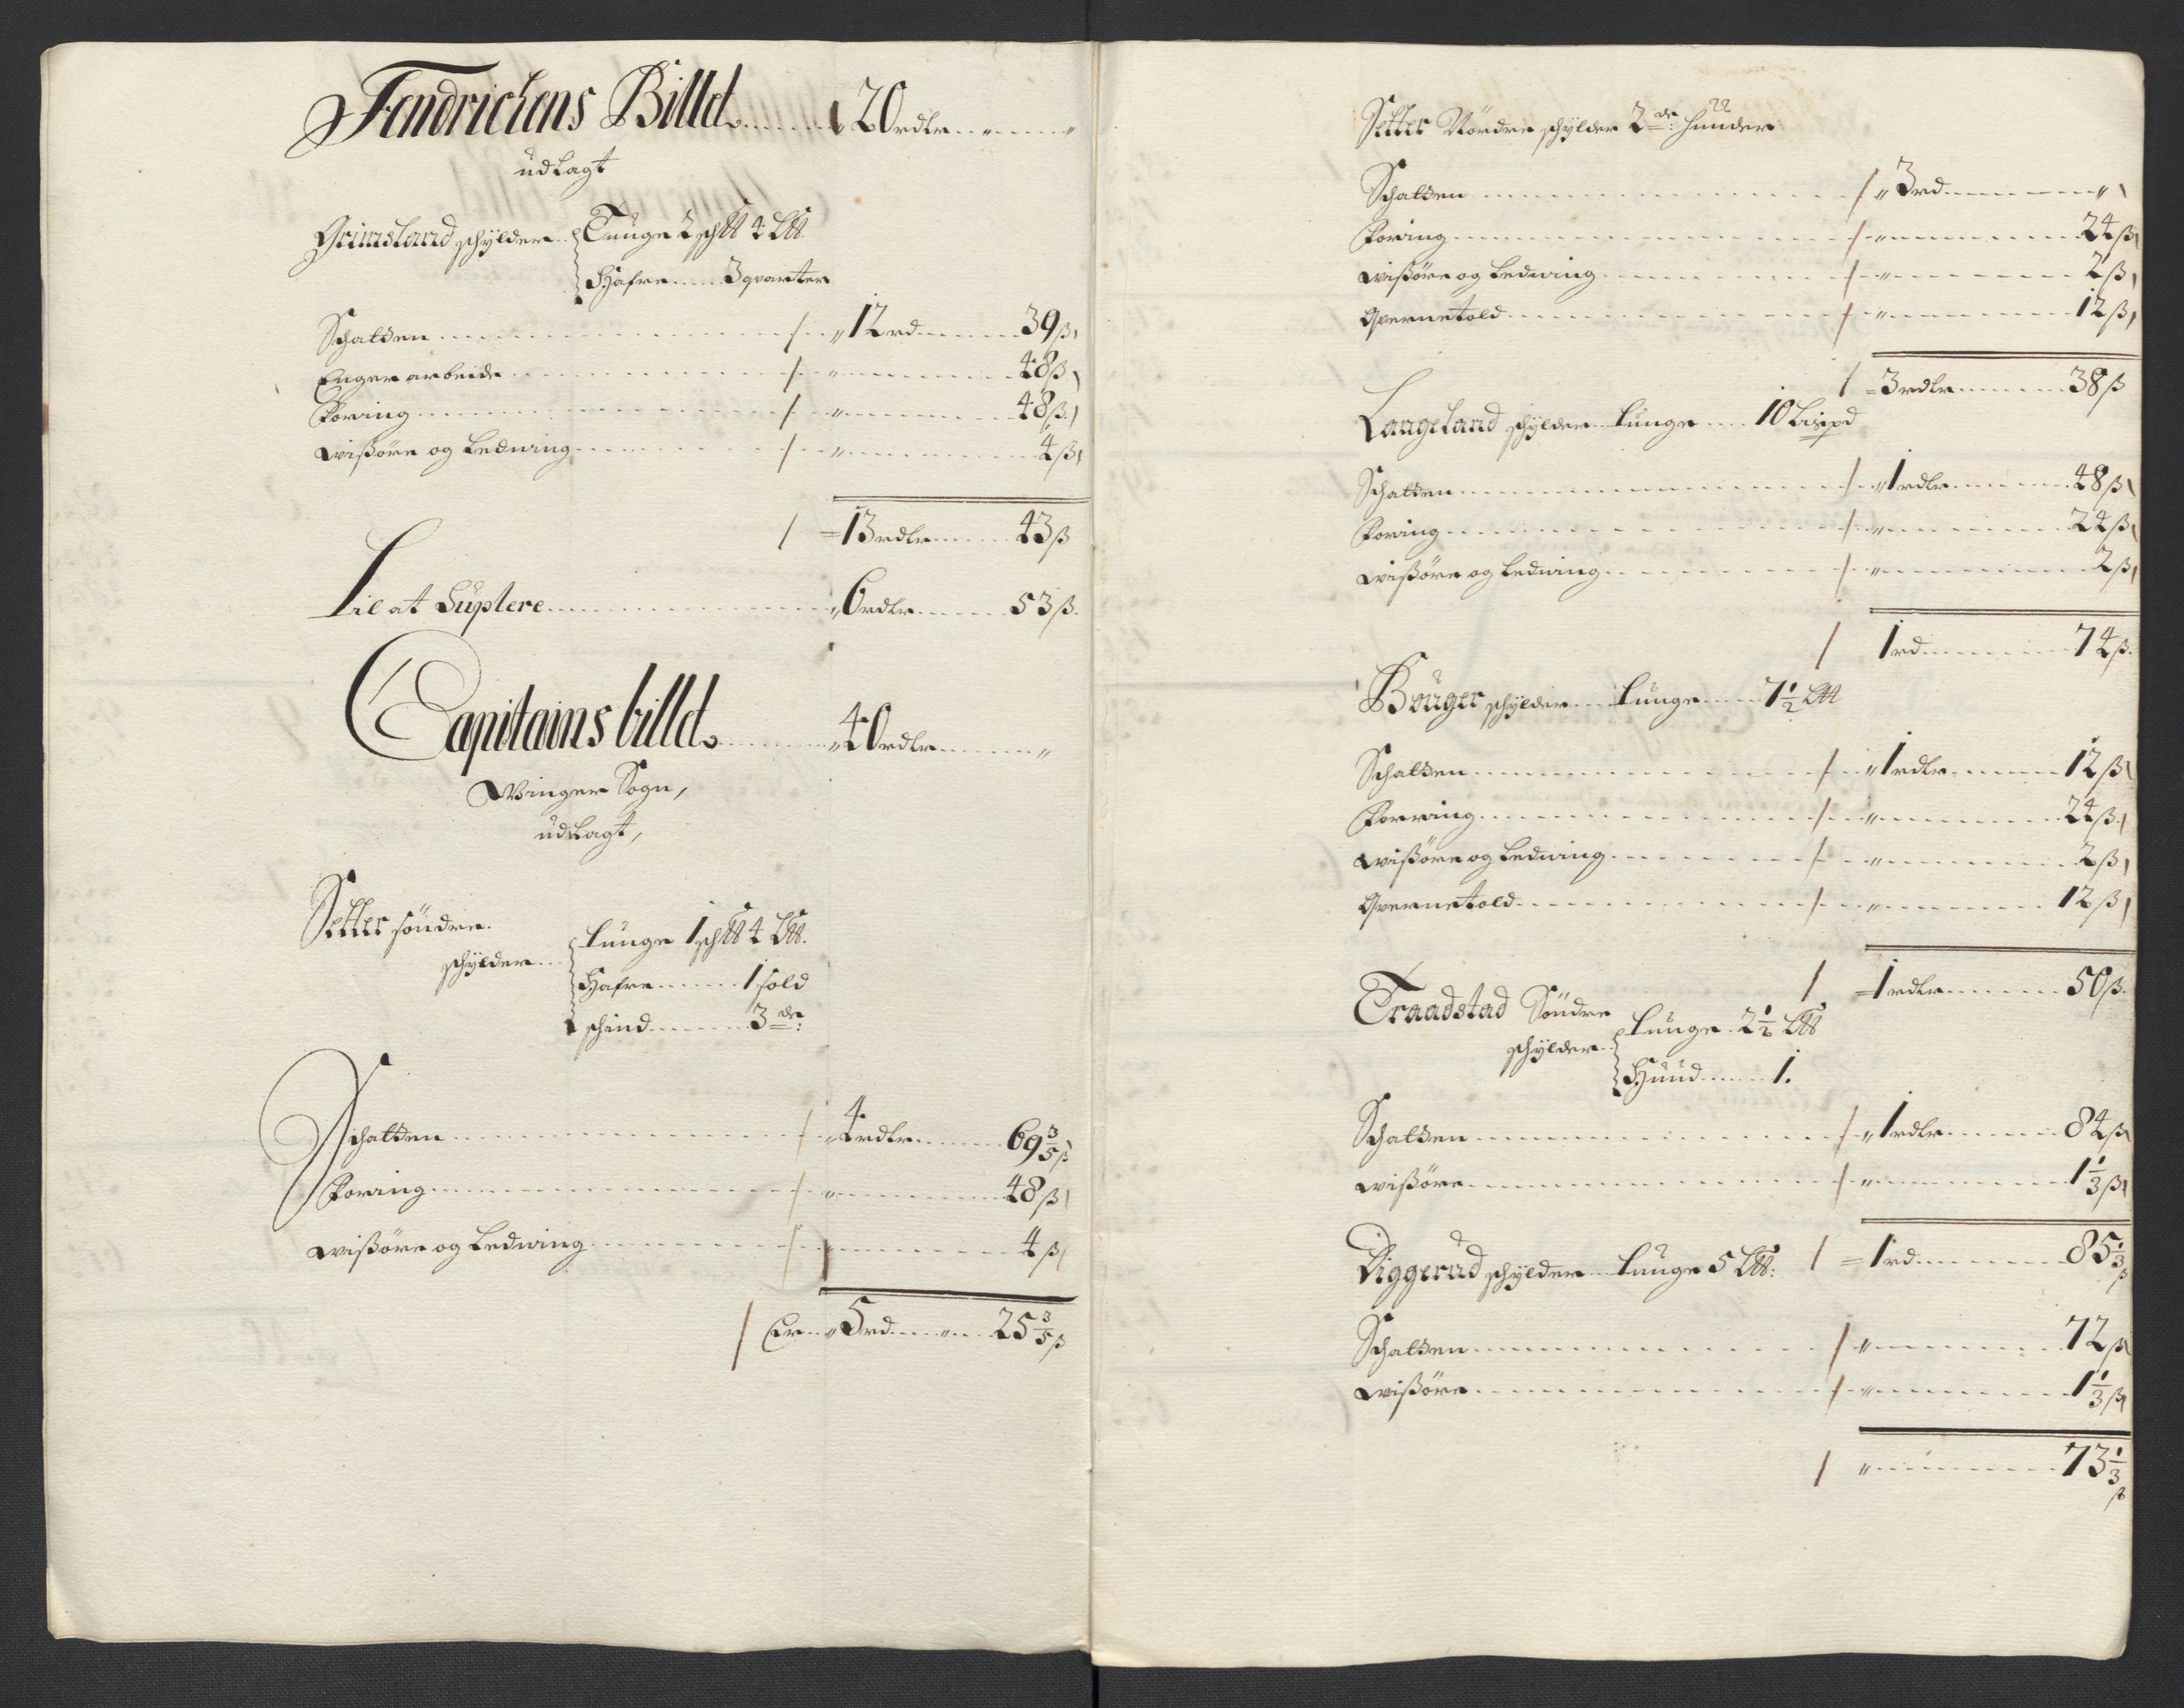 Fendrichens Billet ........ 20 rdlr ........ "
udLagt
Grimsland schÿlder .. Tunge 2 schtt 4 Ltt
Hafre ..... 3 qvarter
Schatten ........ " 12 rd ....... 39 ß
Enger arbeide ........ " ........ 48 ß
Foring ........ " ........ 48 ß
wißøre og Leduing ........ " ........ 4 ß
= 13 rdlr ...... 43 ß
Til at Suplere ........ 6 rdlr ...... 53 ß
Capitains billet ........ 40 rdlr ........ "
Winger Sogn,
udLagt,
Setter söndre.
schÿlder .. tunge 1 schtt 4 Ltt.
Hafre ....... 1 sold
schind ....... 3 de:
Schatten ........ 4 rdlr ....... 69 3/5 ß
Foring ........ " ........ 48 ß
wißøre og Leduing ........ " ........ 4 ß
Er .. " 5 rd ...... 25 3/5 ß
Setter Nördre schÿlder 2 de: hunder
Schatten ........ " 3 rd ........ "
Foring ........ " ........ 24 ß
wißøre og Leduing ........ " ........ 2 ß
Qvernetold ........ " ........ 12 ß
= 3 rdlr ....... 38 ß
Langeland schÿlder tunge .... 10 Lispd
Schatten ........ " 1 rdlr ....... 48 ß
Foring ........ " ........ 24 ß
wißøre og Leduing ........ " ........ 2 ß
1 rd ....... 74 ß
Bouger schÿlder ... tunge ..... 7 1/2 Ltt
Schatten ........ " 1 rdlr ...... 12 ß
Forring ........ " ........ 24 ß
wißøre og Leduing ........ " ........ 2 ß
Qvernetold ........ " ........ 12 ß
= 1 rdlr ....... 50 ß
Traadstad Söndre
schÿlder .. tunge . 2 1/2 Ltt
Hund ...... 1.
Schatten ........ " 1 rdlr ....... 84 ß
wißøre ........ " ........ 1 1/3 ß
= 1 rd ........ 85 1/3 ß
Diggerud schÿlder .. tunge 5 Ltt:
Schatten ........ " ........ 72 ß
wißøre ........ " ........ 1 1/3 ß
" ........ 73 1/3 ß